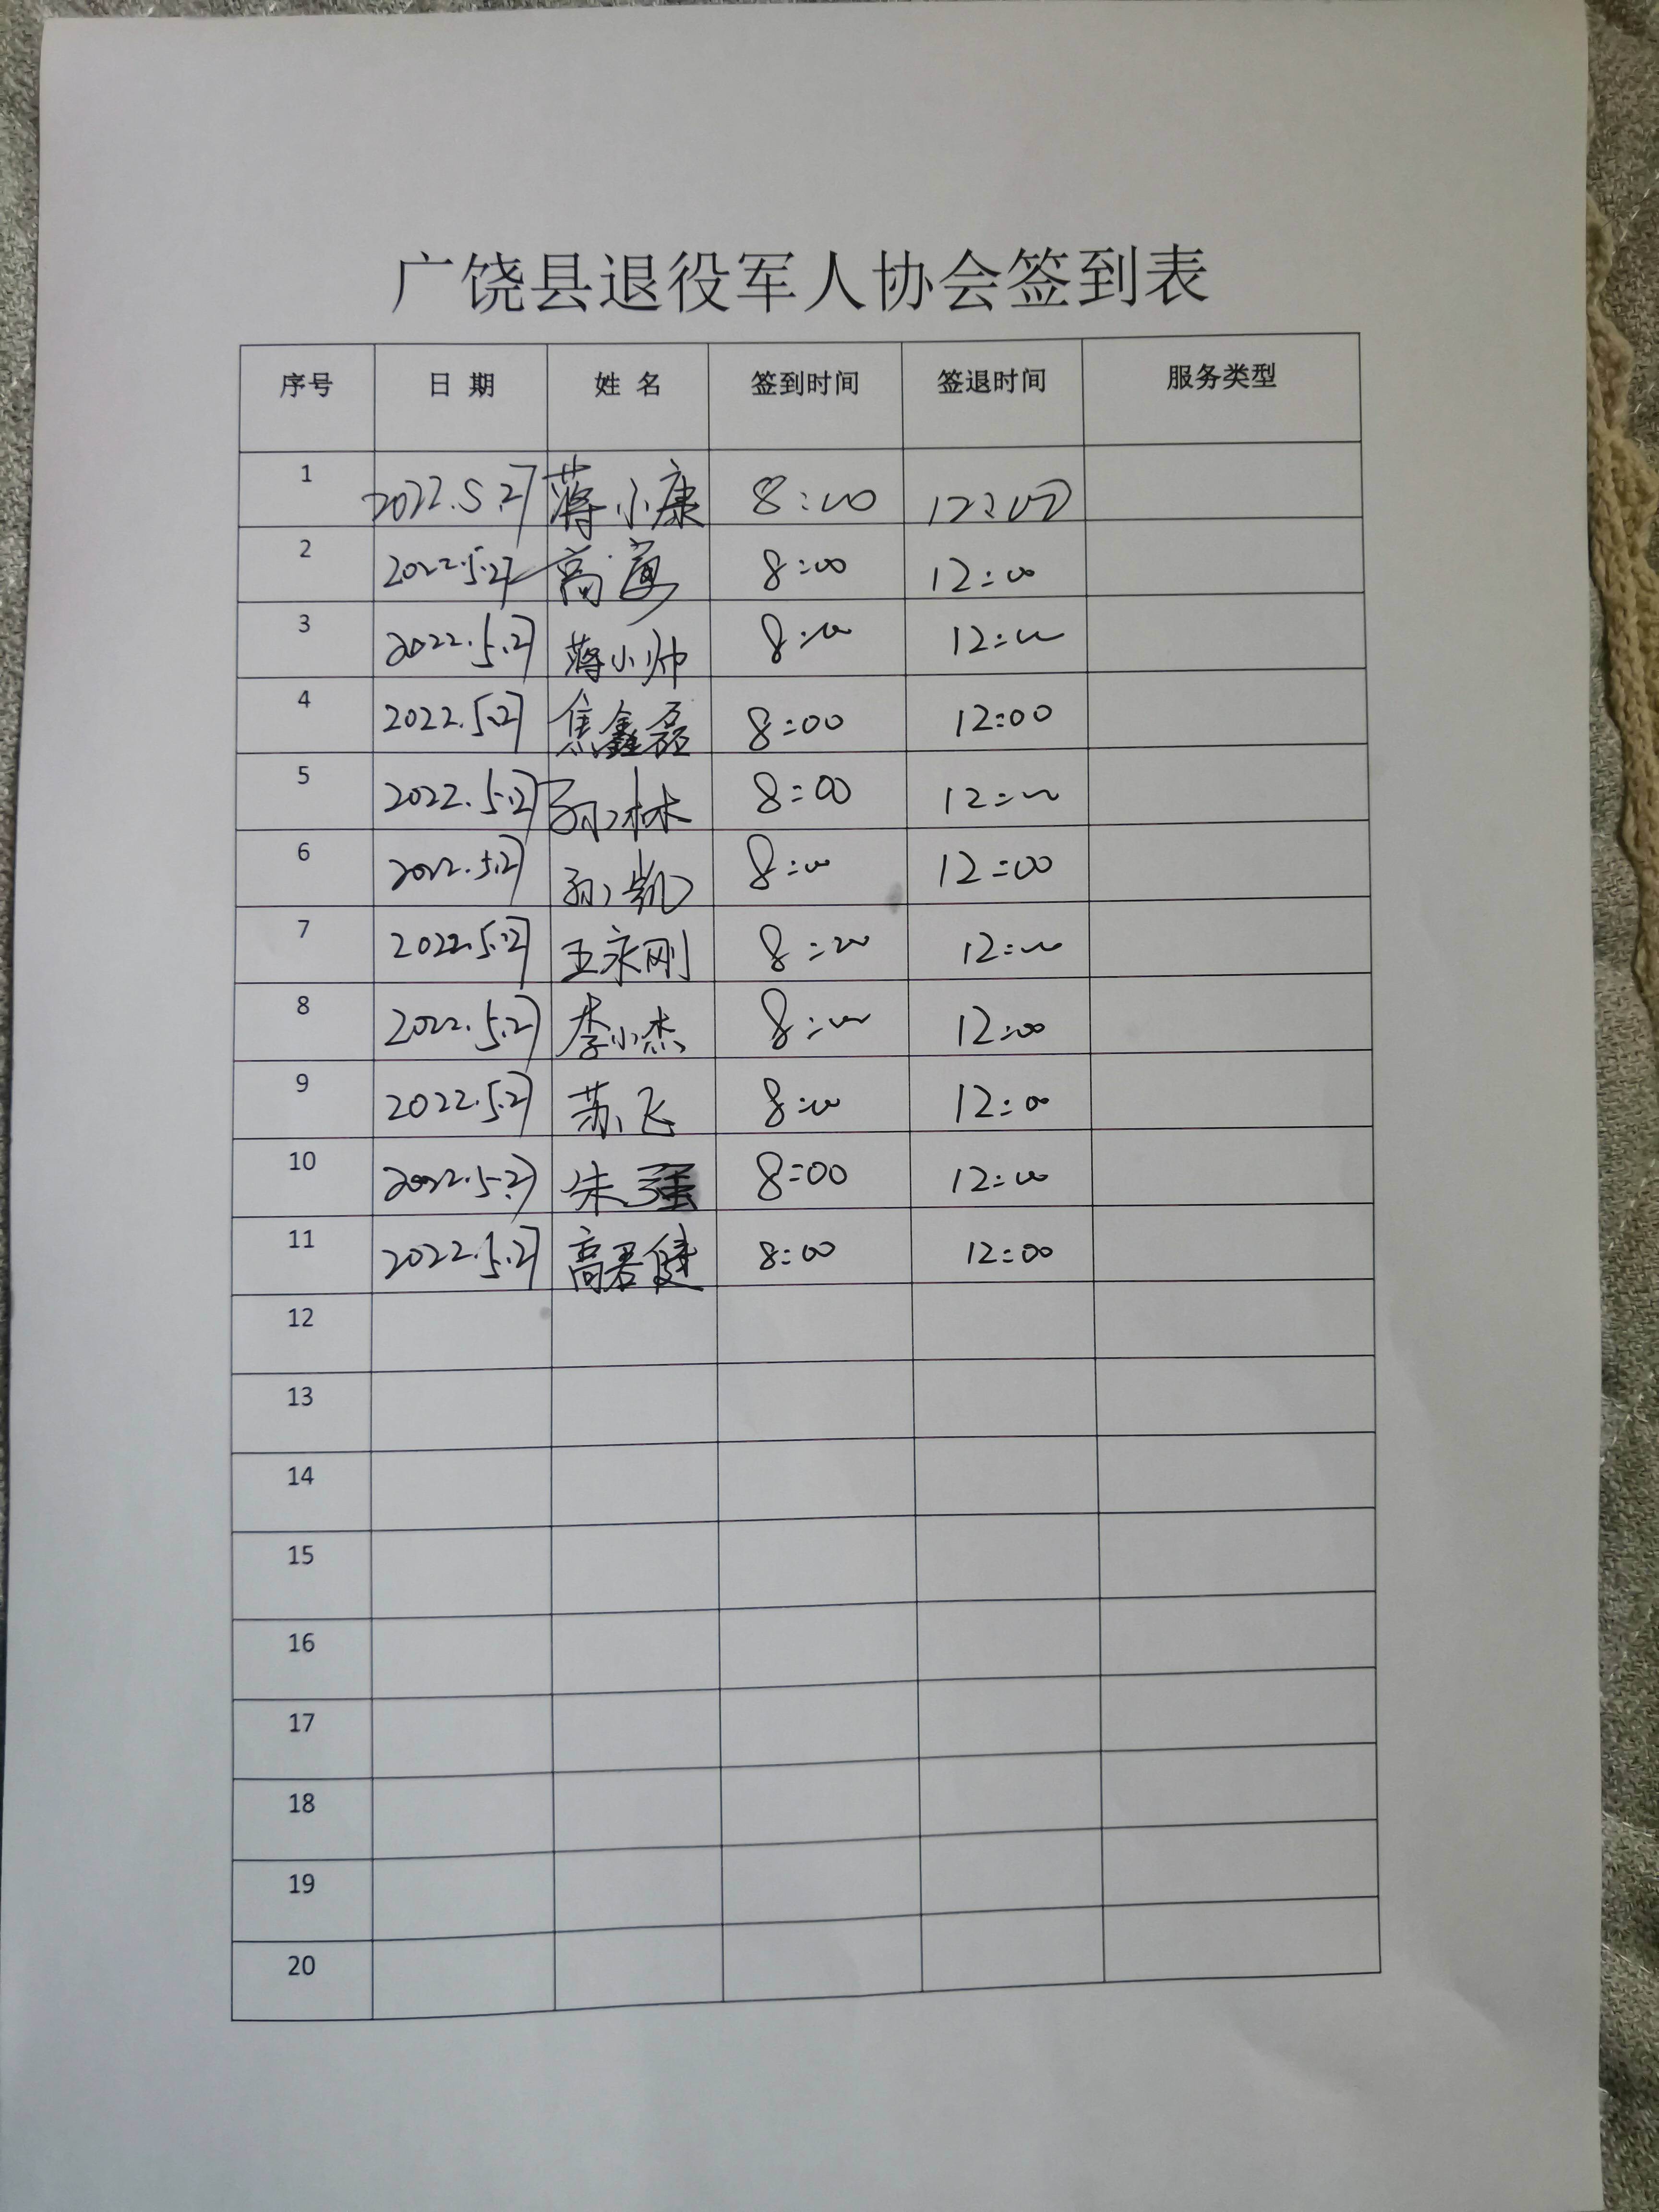 广饶县退役军人协会签到表
序号 日 期 姓 名 签到时间 签退时间 服务类型
1 2022.5.27 蒋小康 8:00 12:00
2 2022.5.27 高 8:00 12:00
3 2022.5.27 蒋小帅 8:00 12:00
4 2022.5.27 焦鑫磊 8:00 12:00
5 2022.5.27 孙林 8:00 12:00
6 2022.5.27 孙凯 8:00 12:00
7 2022.5.27 王永刚 8:00 12:00
8 2022.5.27 李小杰 8:00 12:00
9 2022.5.27 苏飞 8:00 12:00
10 2022.5.27 朱强 8:00 12:00
11 2022.5.27 高君健 8:00 12:00
12
13
14
15
16
17
18
19
20